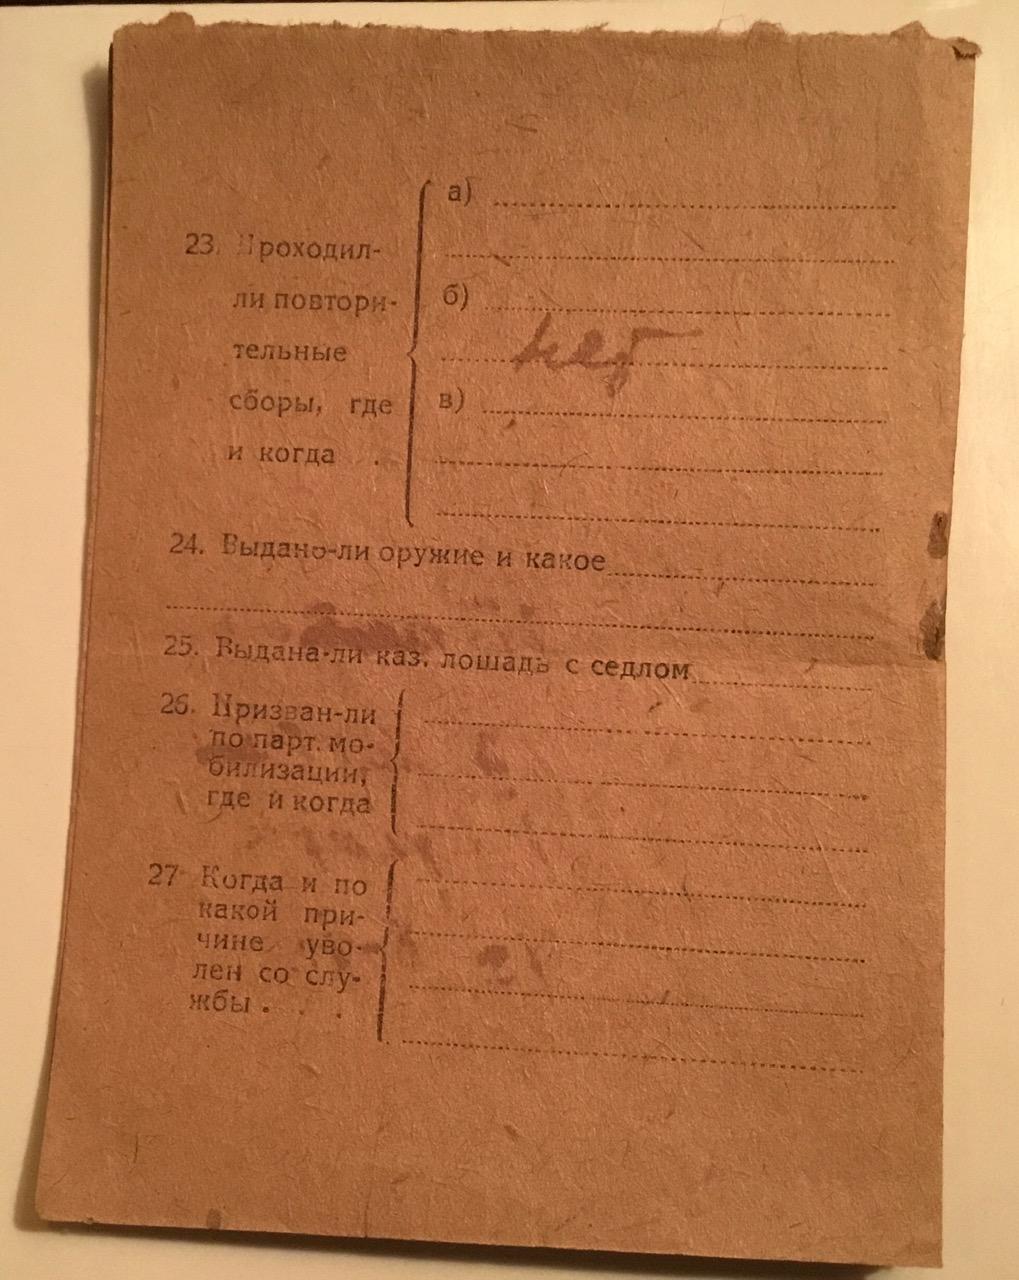 а)
23. Проходил-
ли повтори-
б)
тельные
нет
сборы, где
в)
и когда .
24. Выдано-ли оружие и какое
25. Выдана-ли каз. лошадь с седлом
26. Призван-ли
по парт. мо-
билизации,
где и когда
27 Когда и по
какой при-
чине уво-
лен со слу-
жбы . . .